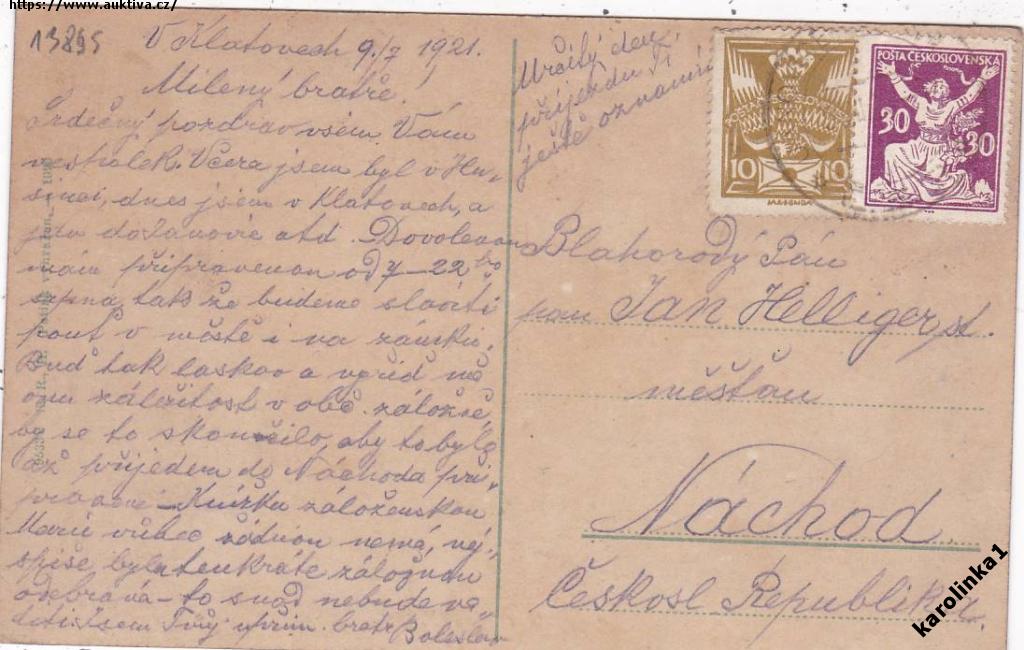 https://www.auktiva.cz/
13895
V Klatovech 9./7 1921.
Milený bratře.
Srdečný pozdrav všem Vám
vespolek. Včera jsem byl v Hu-
sinci, dnes jsem v Klatovech, a
jdu do Janovic atd. Dovolenou
mám připravenou od 7–22
srpna, tak že budeme slaviti
pouť v městě i na zámku.
Buď tak laskav a vyřiď mě
onu záležitost v obč. záložně,
by se to skončilo, aby to bylo
až přijedem do Náchoda při-
praveno. Knížku záloženskou
Marie vůbec žádnou nemá, nej-
spíše byla tenkráte zálohou
odebrána – to snad nebude va-
diti. Jsem Tvůj upřím. bratr
Boleslav
Určitý den
příjezdu Ti
ještě oznámím
POŠTA ČESKOSLOVENSKÁ
10 10
POŠTA ČESKOSLOVENSKÁ
30 30
Blahorodý Pán
pan Jan Helliger, st.
měšťan
Náchod
Českosl Republika.
karolinka1